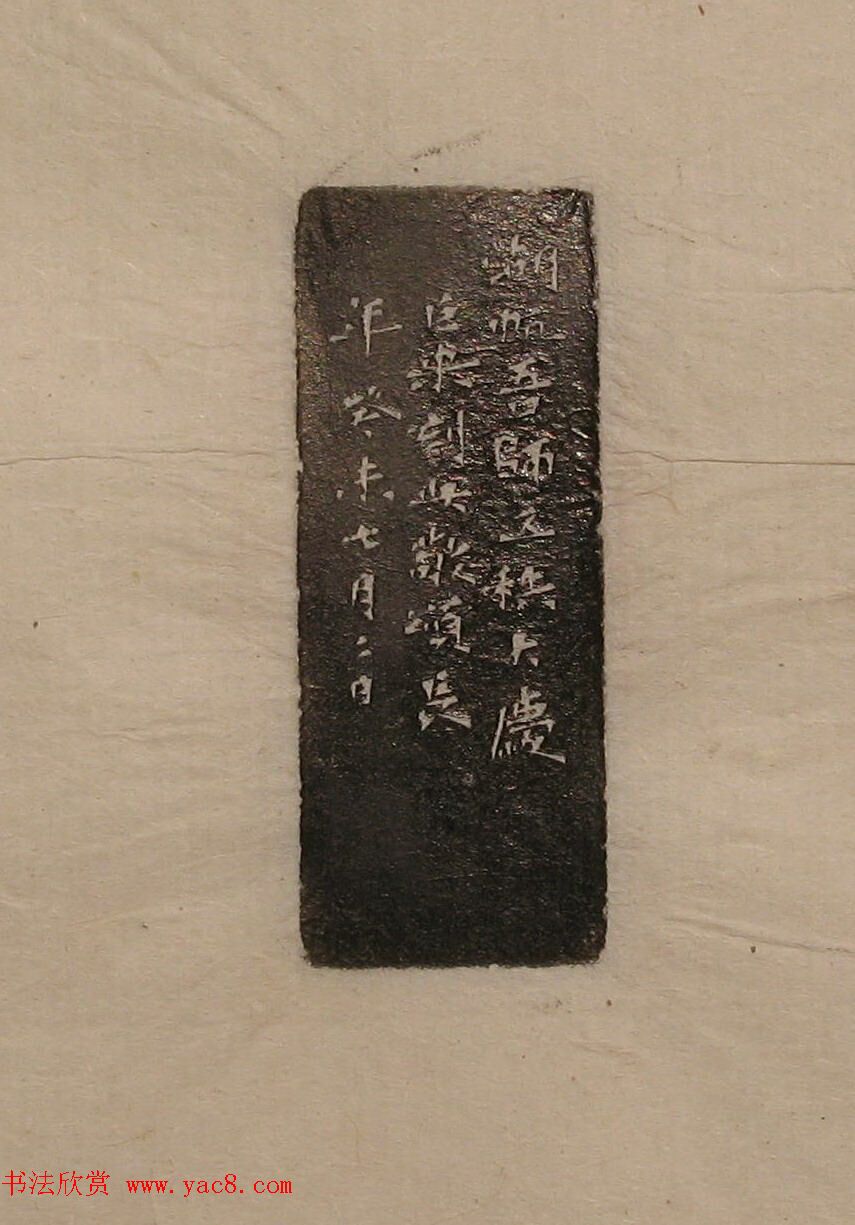 湖帆吾師五秩大慶
巨來刻此敬頌長
年 癸未七月二日
书法欣赏 www.yac8.com